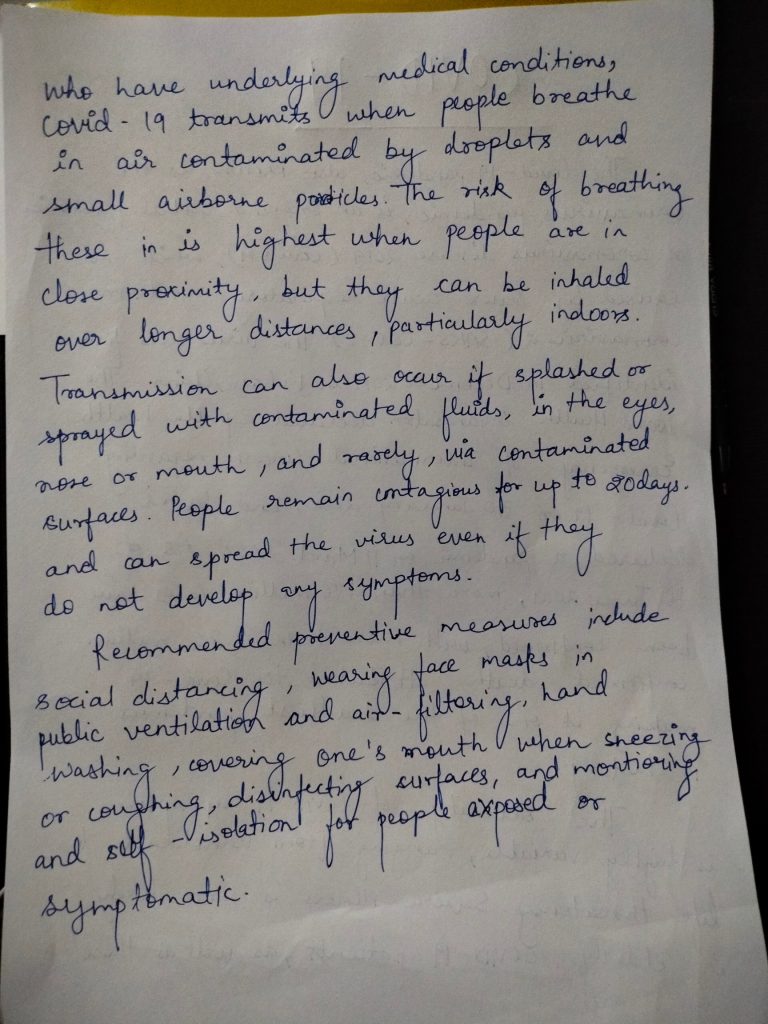 who have underlying medical conditions,
Covid-19 transmits when people breathe
in air contaminated by droplets and
small airborne particles. The risk of breathing
these in is highest when people are in
close proximity, but they can be inhaled
over longer distances, particularly indoors.
Transmission can also occur if splashed or
sprayed with contaminated fluids, in the eyes,
nose or mouth, and rarely, via contaminated
surfaces. People remain contagious for up to 20days.
and can spread the virus even if they
do not develop any symptoms.
Recommended preventive measures include
social distancing, wearing face masks in
public ventilation and air-filtering, hand
washing, covering one's mouth when sneezing
or coughing, disinfecting surfaces, and montioring
and self-isolation for people exposed or
symptomatic.